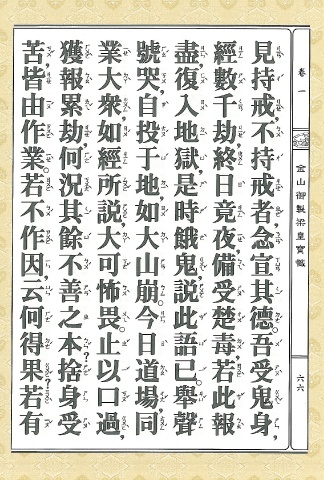 卷一
金山御製梁皇寶懺
六六
見持戒,不持戒者,念宣其德。吾受鬼身,
經數千劫,終日竟夜,備受楚毒,若此報
盡,復入地獄,是時餓鬼說此語已。舉聲
號哭,自投于地,如大山崩。今日道場,同
業大衆,如經所說,大可怖畏。止以口過,
獲報累劫,何況其餘不善之本?捨身受
苦,皆由作業。若不作因,云何得果?若有